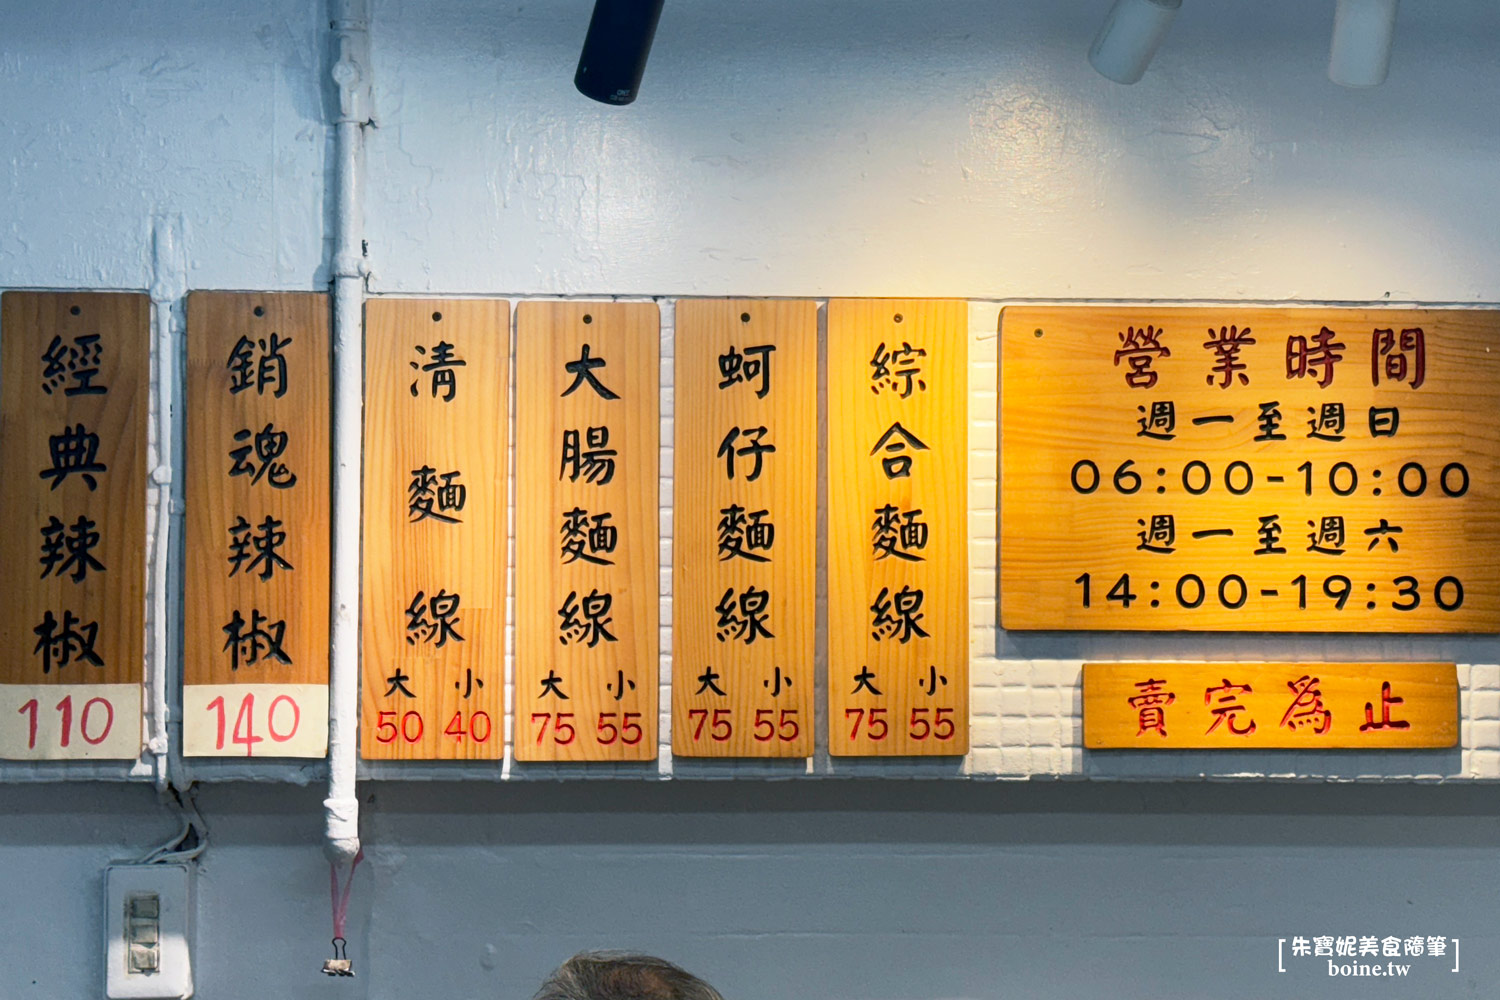 經典辣椒
110
銷魂辣椒
140
清麵線
大 小
50 40
大腸麵線
大 小
75 55
蚵仔麵線
大 小
75 55
綜合麵線
大 小
75 55
營業時間
週一至週日
06:00-10:00
週一至週六
14:00-19:30
賣完為止
朱寶妮美食隨筆
boine.tw